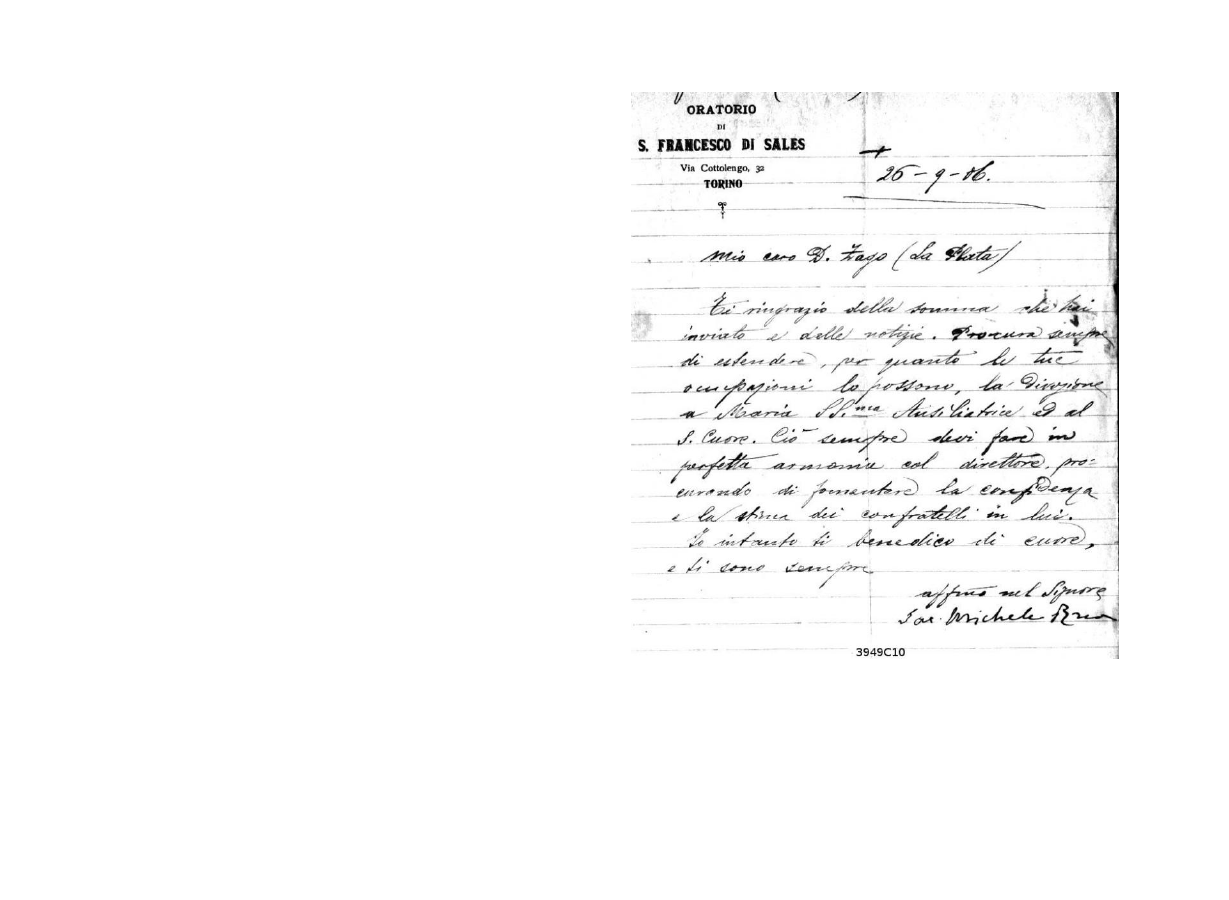 ORATORIO
DI
S. FRANCESCO DI SALES
Via Cottolengo, 32
TORINO
26-9-06.
Mio caro D. Zago (La Plata)
Ti ringrazio della somma che hai
inviato e delle notizie. Procura sempre
di estendere, per quanto le tue
occupazioni lo possono, la Divozione
a Maria SS.ma Ausiliatrice ed al
S. Cuore. Ciò sempre devi fare in
perfetta armonia col direttore, pro=
curando di fomentare la confidenza
e la stima dei confratelli in lui.
Io intanto ti benedico di cuore,
e ti sono sempre
affmo nel Signore
Sac. Michele Rua
3949C10